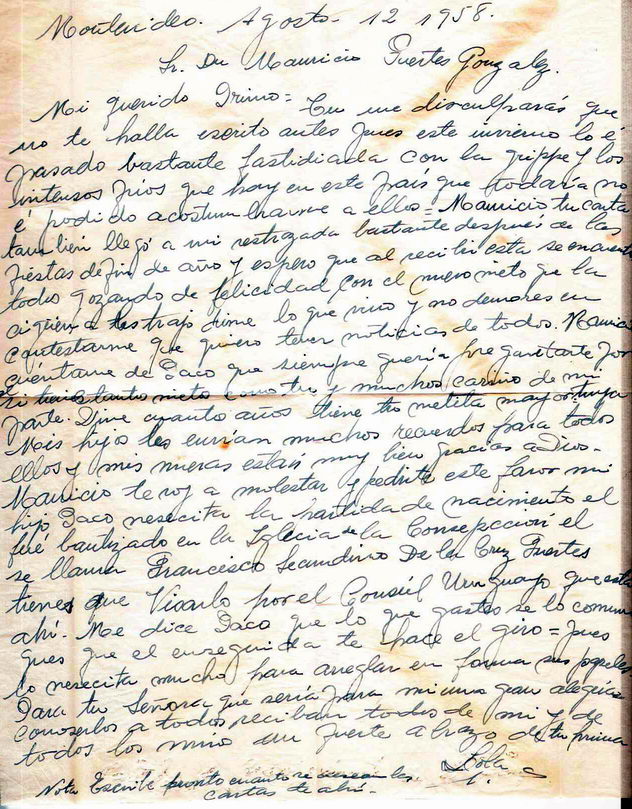 Montevideo. Agosto - 12 1958.
Sr. Dn Mauricio Fuertes Gonzalez.
Mi querido Primo = Tu me disculparás que
no te halla escrito antes pues este invierno lo é
pasado bastante fastidiada con la grippe y los
intensos frios que hay en este país que todavía no
é podido acostumbrarme a ellos = Mauricio tu carta
tambien llegó a mi restrazada bastante después de las
fiestas de fin de año y espero que al recibir esta se encuentr
todos gozando de felicidad con el nuevo nieto que la
sigueña les trajo dime lo que vino y no demores en
contestarme que quiero tener noticias de todos. Mauricio
cuéntame de Paco que siempre queria preguntarte por
si tenia tanto nieto como tu y muchos cariño de mi
parte. Dime cuanto años tiene tu nietita mayor tuya
Mis hijo les envian muchos recuerdos para todos
ellos y mis nueras están muy bien gracias a Dios -
Mauricio te voy a molestar y pedirte este favor mi
hijo Paco nesecita la partida de nacimiento el
fué bautizado en la Iglecia de la Consepccion el
se llama Francisco Secundino De la Cruz Fuertes
tienes que Visarlo por el Consúl Uruguayo que está
ahí. Me dice Paco que lo que gastes se lo comun
ques que el enseguida te hace el giro = pues
lo nesecita mucho para arreglar en forma sus papeles.
Para tu Señora que seria para mi una gran alegria
conoserlos a todos reciban todos de mi y de
todos los mio un fuerte abrazo de tu prima
Lola
Nota Escribe pronto cuanto se las
cartas de ahí.